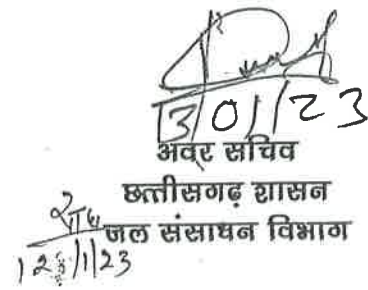 13/01/23
अवर सचिव
छत्तीसगढ़ शासन
जल संसाधन विभाग